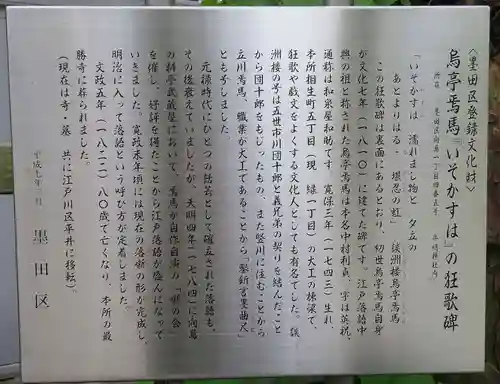 〈墨田区登録文化財〉
烏亭焉馬『いそかすは』の狂歌碑
所在 墨田区向島
「いそかすは 濡れまし物と 夕立の
あとよりはるゝ 堪忍の虹」 談洲楼烏亭焉馬
この狂歌碑は表面にあるとおり、初世烏亭焉馬自身
が文化七年（一八一〇）に建てた碑です。江戸落語中
興の祖と称された烏亭焉馬は本名中村利貞、字は英祝、
通称は和泉屋和助です。寛保三年（一七四三）生れ、
本所相生町五丁目（現 緑一丁目）の大工の棟梁で、
狂歌や戯文をよくする文化人としても有名でした。談
洲楼の号は五世市川団十郎と義兄弟の契りを結んだこと
から団十郎をもじったもの、また竪川に住むことから
立川焉馬、職業が大工であることから「鑿釿言墨曲尺」
とも号しました。
元禄時代にひとつの話芸として確立された落語も、
その後衰えていましたが、天明四年（一七八四）に向島
の料亭武蔵屋において、焉馬が自作自演の「咄の会」
を催し、好評を得たことから江戸落語が盛んになって
いきました。寛政末年頃には現在の落語の形が完成し、
明治に入って落語という呼び方が定着しました。
文政五年（一八二二）八〇歳で亡くなり、本所の最
勝寺に葬られました。
（現在は寺・墓 共に江戸川区平井に移転）。
平成七年三月
墨田区